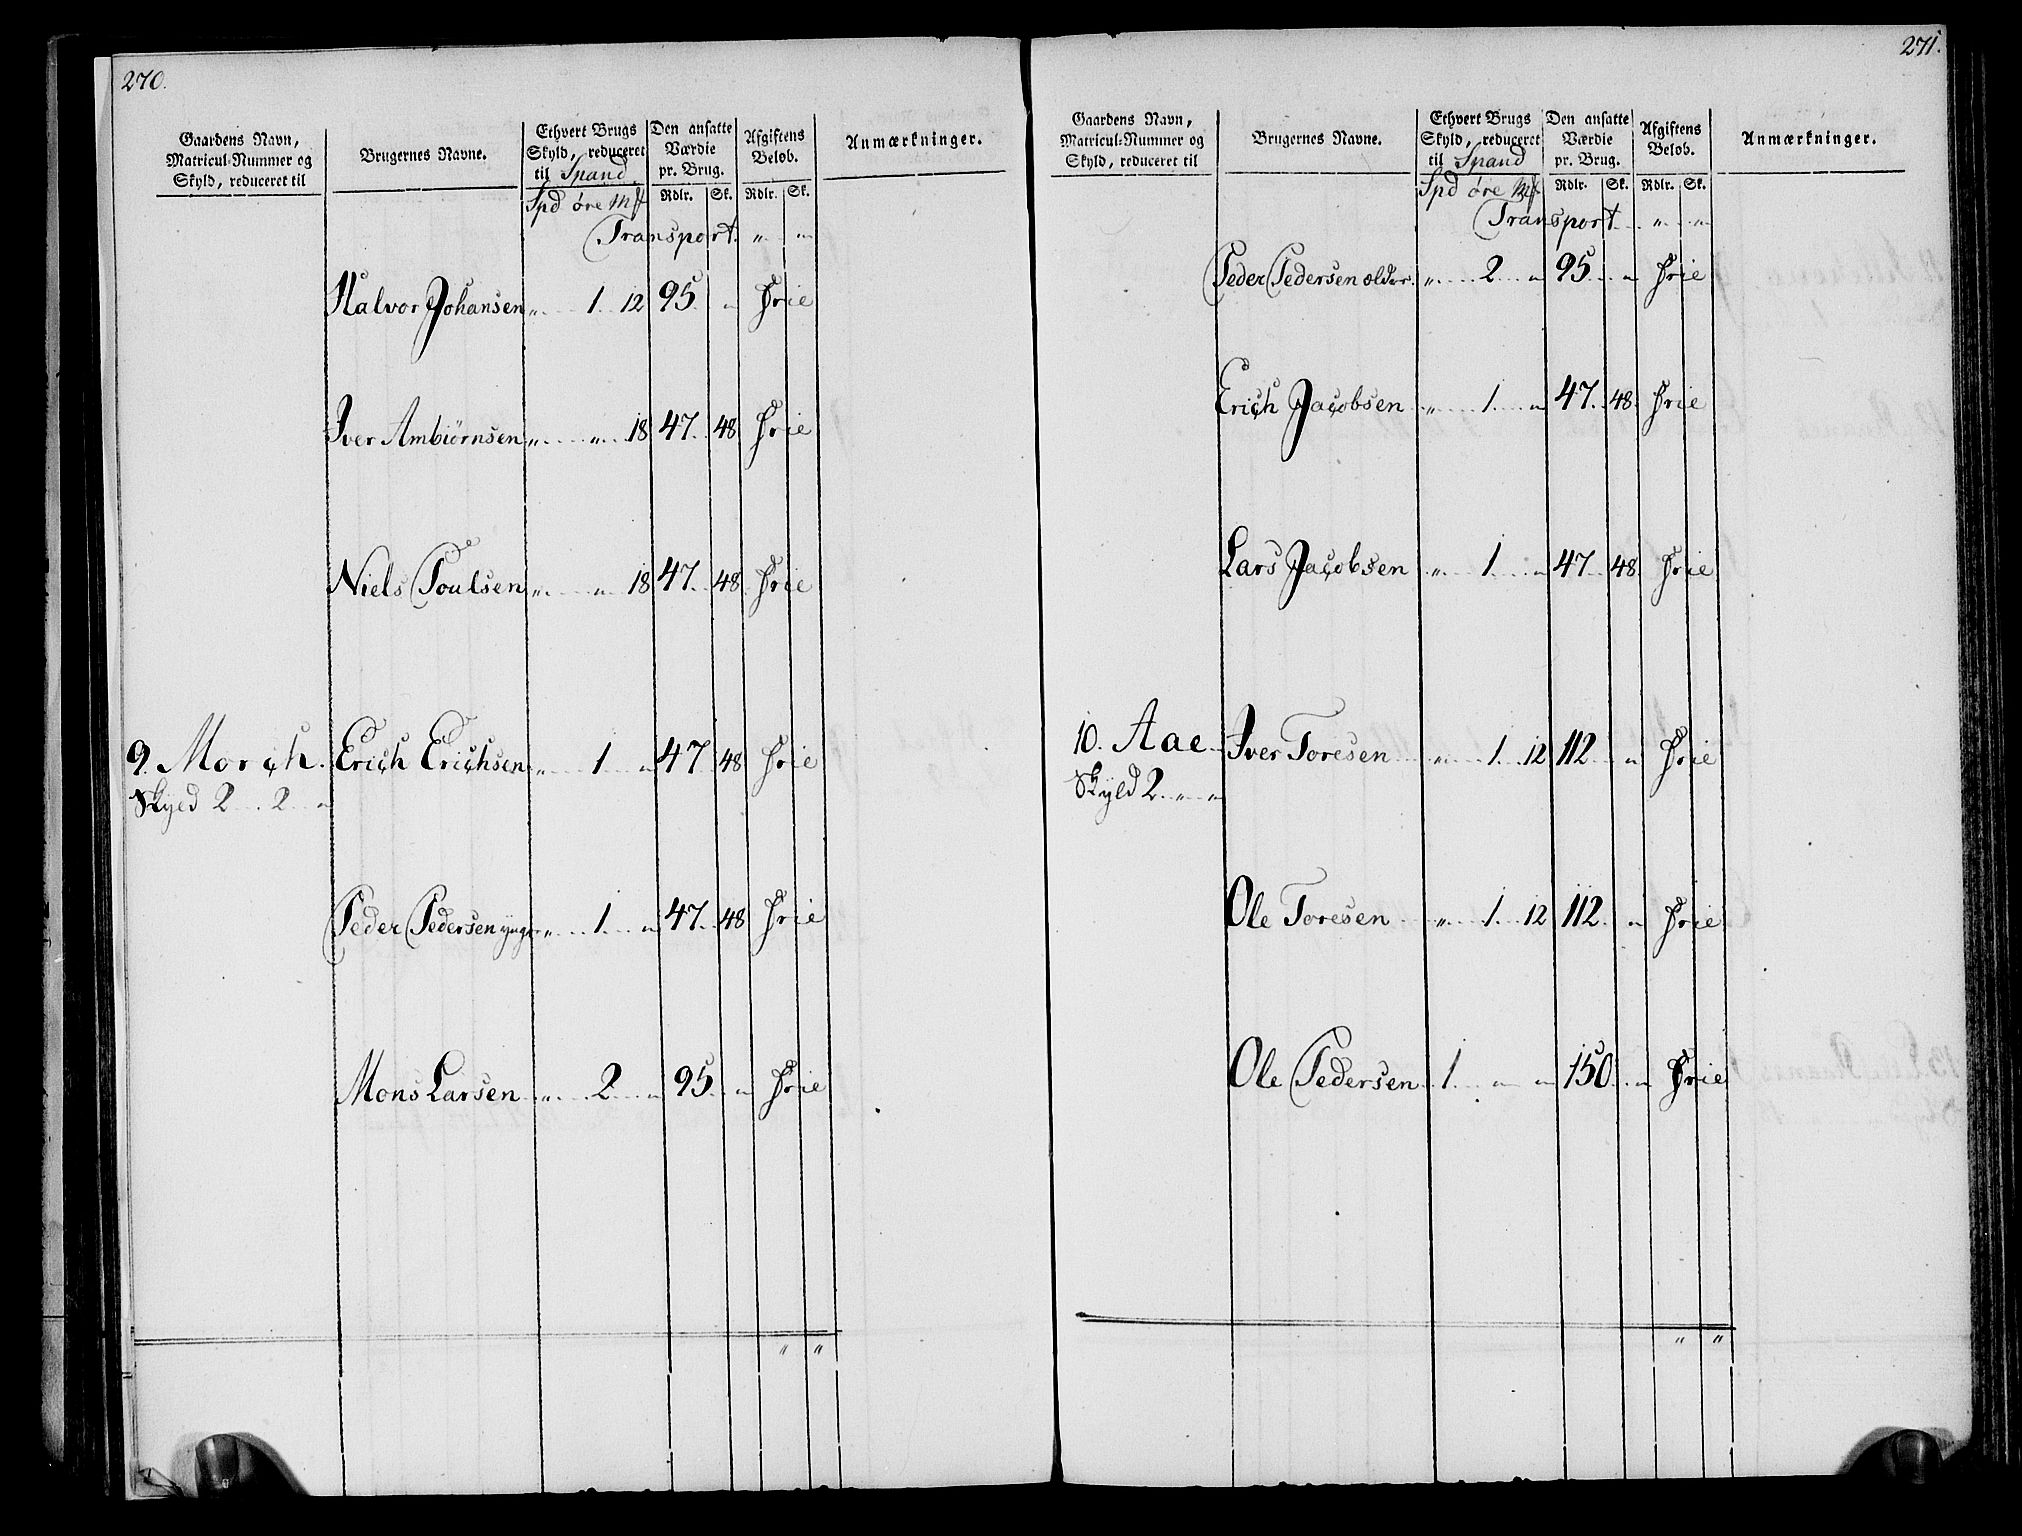 270.
Gaardens Navn, Matricul-Nummer og Skyld, reduceret til
Brugernes Navne.
Ethvert Brugs Skyld, reduceret til Spand.
Den ansatte Værdie pr. Brug.
Afgiftens Beløb.
Anmærkninger.
Spd øre Mk Rdlr. Sk. Rdlr. Sk.
Transport. " "
Halvor Johansen " 1 12 95 " Frie
Iver Ambiörnsen " " 18 47 48 Frie
Niels Poulsen " " 18 47 48 Frie
9. Morch. Erich Erichsen " 1 " 47 48 Frie
Skyld 2 2 "
Peder Pedersen yngr " 1 " 47 48 Frie
Mons Larsen " 2 " 95 " Frie
" "
271.
Gaardens Navn, Matricul-Nummer og Skyld, reduceret til
Brugernes Navne.
Ethvert Brugs Skyld, reduceret til Spand
Den ansatte Værdie pr. Brug.
Afgiftens Beløb.
Anmærkninger.
Spd øre Mk Rdlr. Sk. Rdlr. Sk.
Transport " "
Peder Pedersen ælder. " 2 " 95 " Frie
Erich Jacobsen " 1 " 47 48 Frie
Lars Jacobsen " 1 " 47 48 Frie
10. Aae Iver Toresen " 1 12 112 " Frie
Skyld 2 " "
Ole Toresen " 1 12 112 " Frie
Ole Pedersen 1 " " 150 " Frie
" "